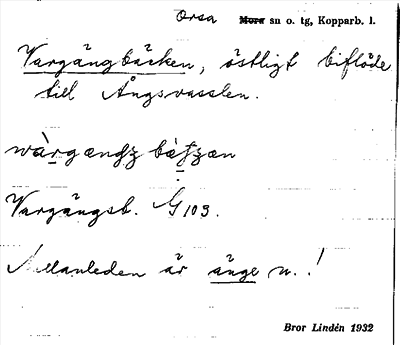 Orsa Mora sn o. tg, Kopparb. l.
Vargängbäcken, östligt biflöde
till Ångsvasslen.
Vargängsb. G 103.
Mellanleden är änge n.!
Bror Lindén 1932